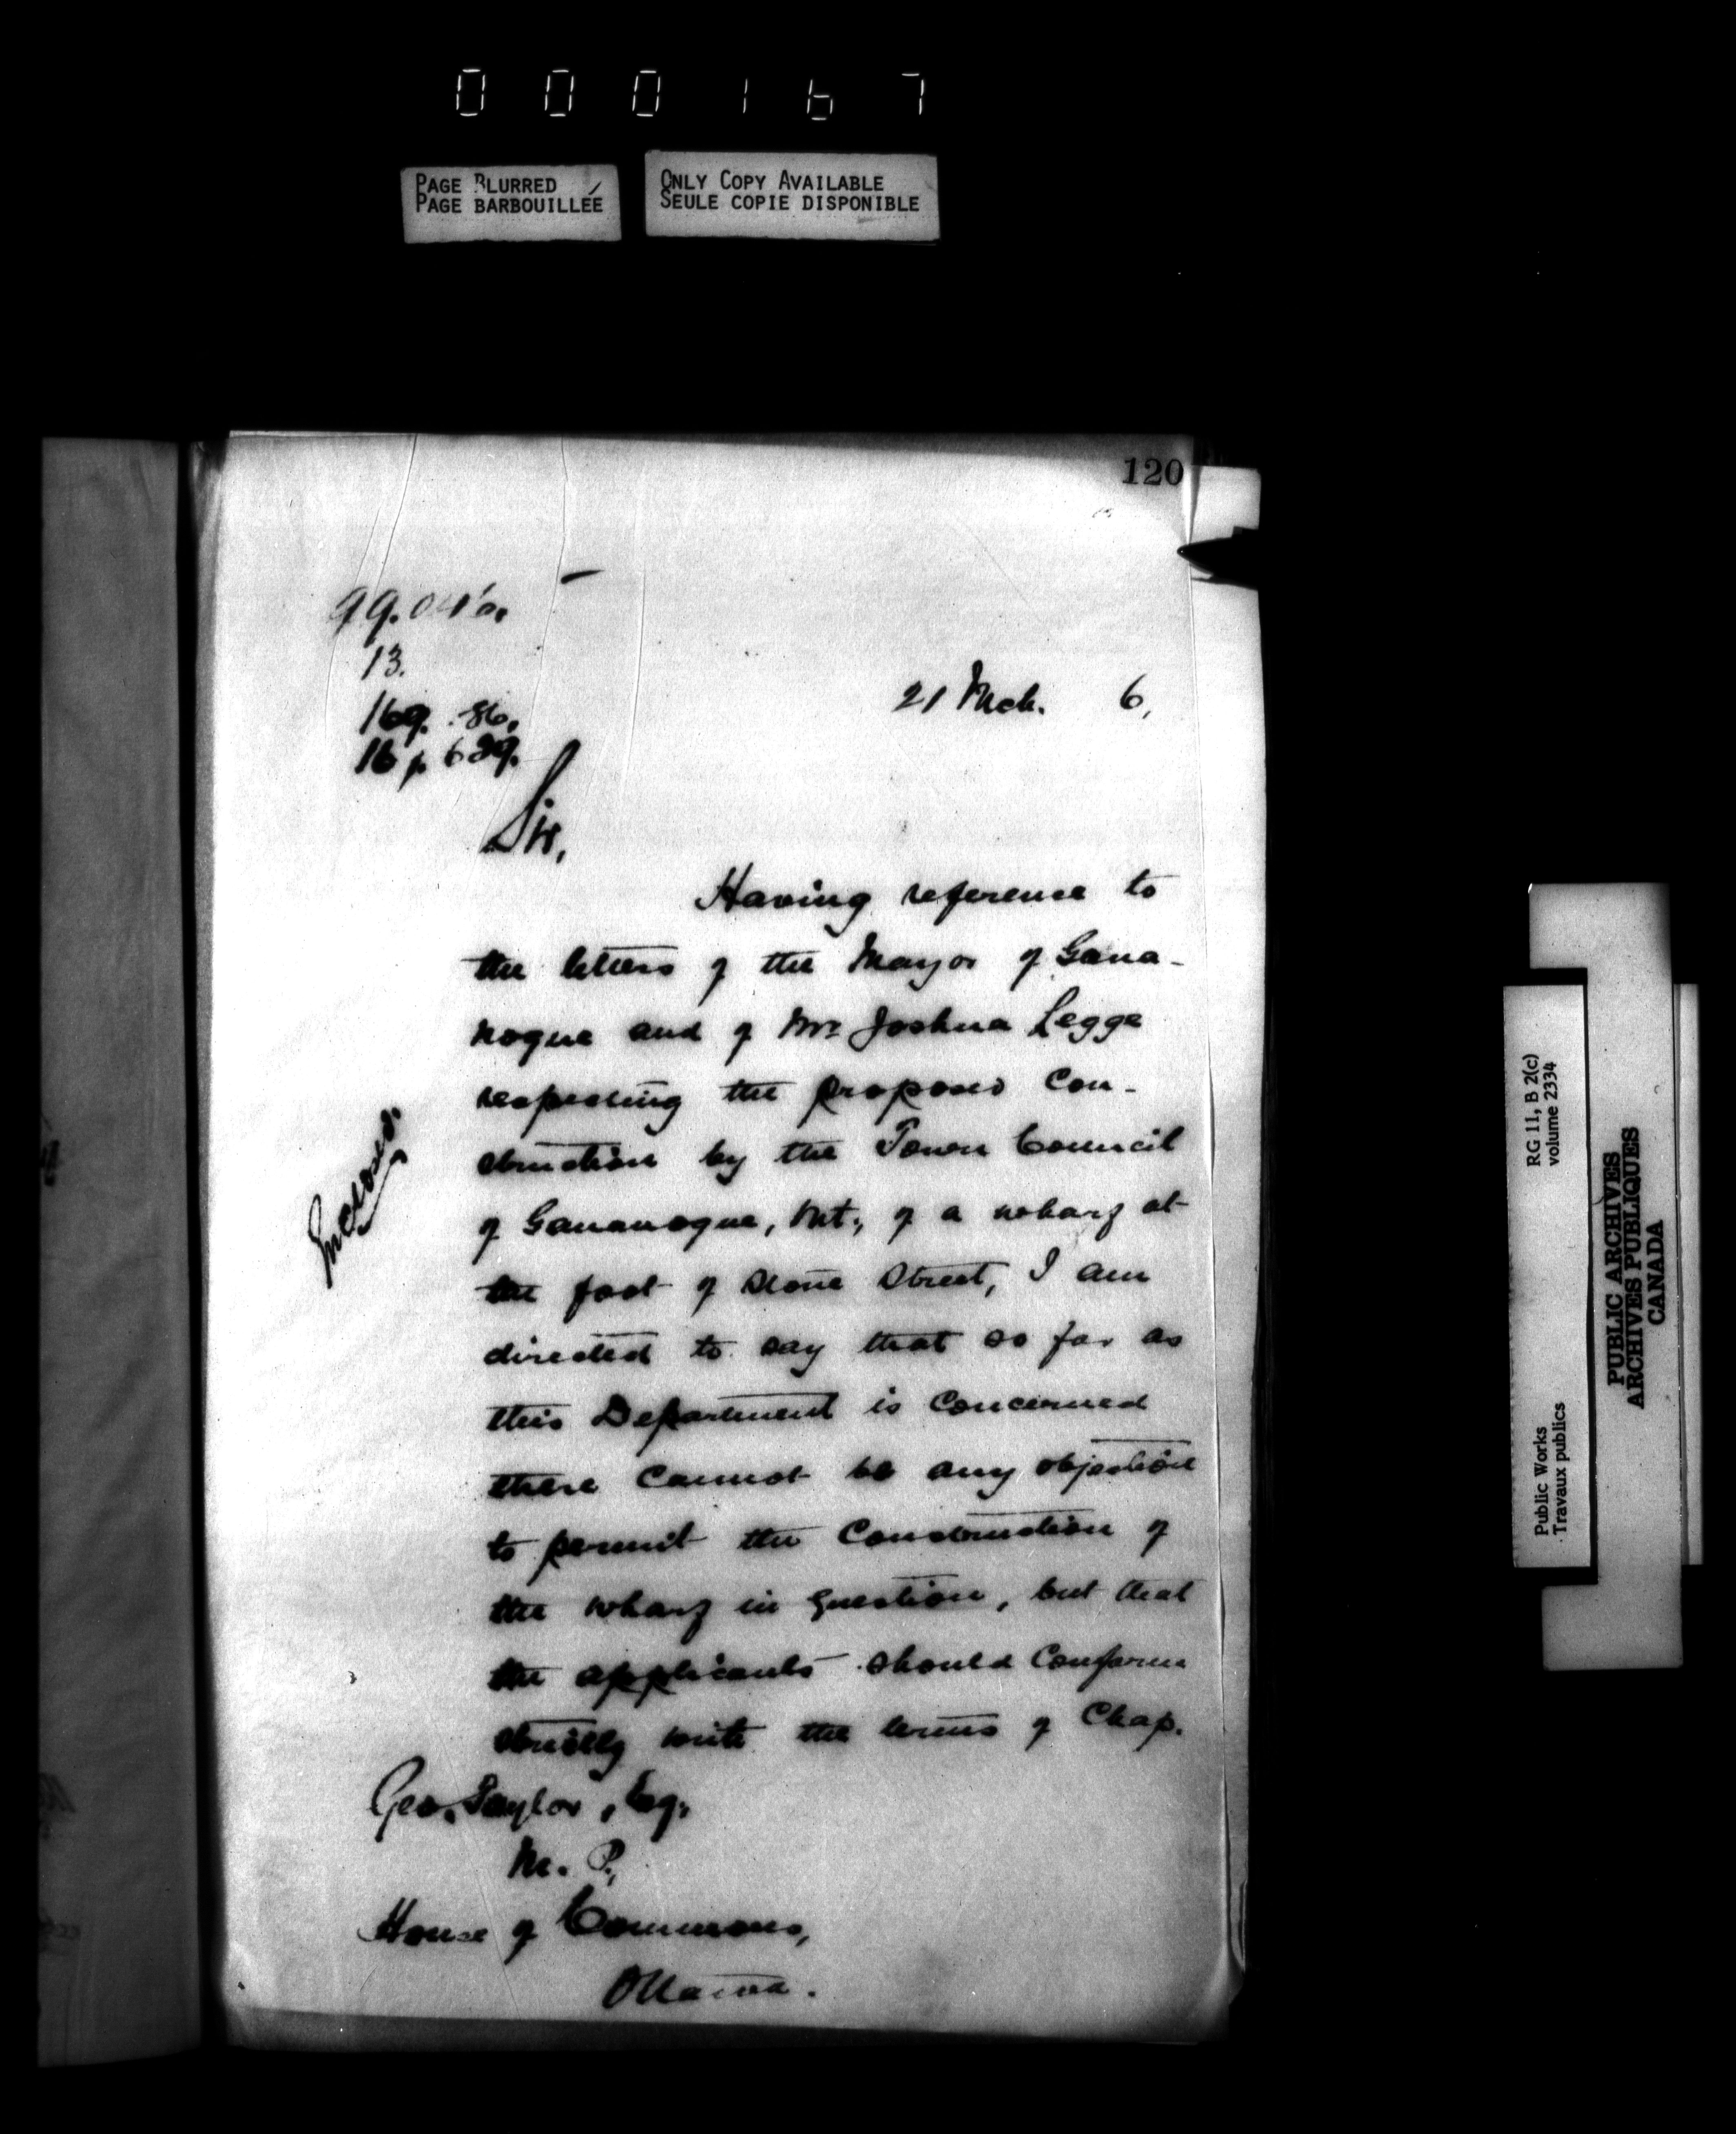 000167
PAGE BLURRED
PAGE BARBOUILLÉE
ONLY COPY AVAILABLE
SEULE COPIE DISPONIBLE
120
13.
169. 86.
16 p. 629.
21 Mch. 6,
Sir,
Having reference to
the letters of the Mayor of Gana-
noque and of Mr Joshua Legge
respecting the proposed con-
struction by the Town Council
of Gananoque, Ont., of a wharf at
the foot of Stone Street, I am
directed to say that so far as
this Department is concerned
there cannot be any objection
to permit the construction of
the wharf in question, but that
the applicants should conform
strictly with the terms of Chap.
Geo. Taylor, Esq.,
M. P.,
House of Commons,
Ottawa.
RG 11, B 2(c)
volume 2334
Public Works
Travaux publics
PUBLIC ARCHIVES
ARCHIVES PUBLIQUES
CANADA